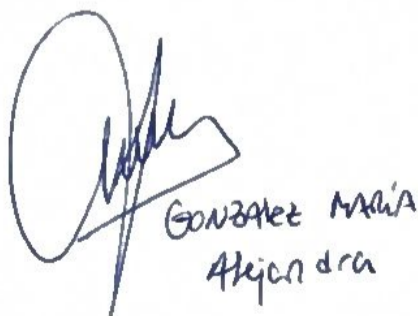 GONZALEZ MARÍA
Alejandra